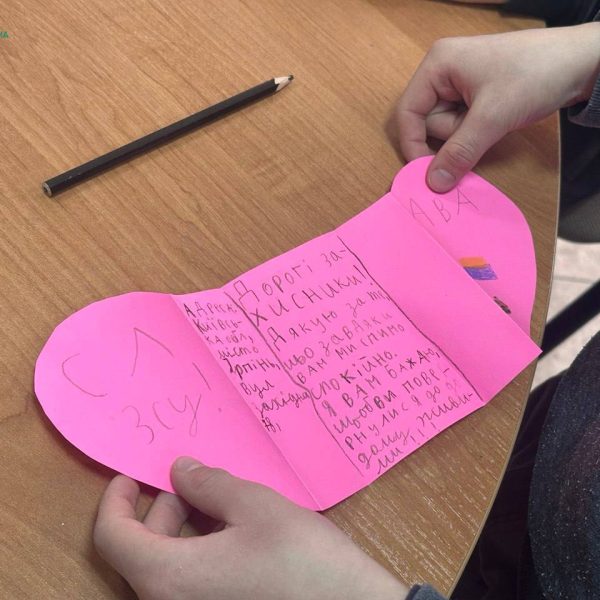 СЛ
ЗСУ!
Адреса:
Київсь-
ка обл,
місто
Ірпінь,
вул
західна
Дорогі за-
хисники!
Дякую за те,
що завдяки
вам ми спимо
спокійно.
Я вам бажаю,
щоб ви повер-
нулися до
дому живи-
ми!
АВА
НА